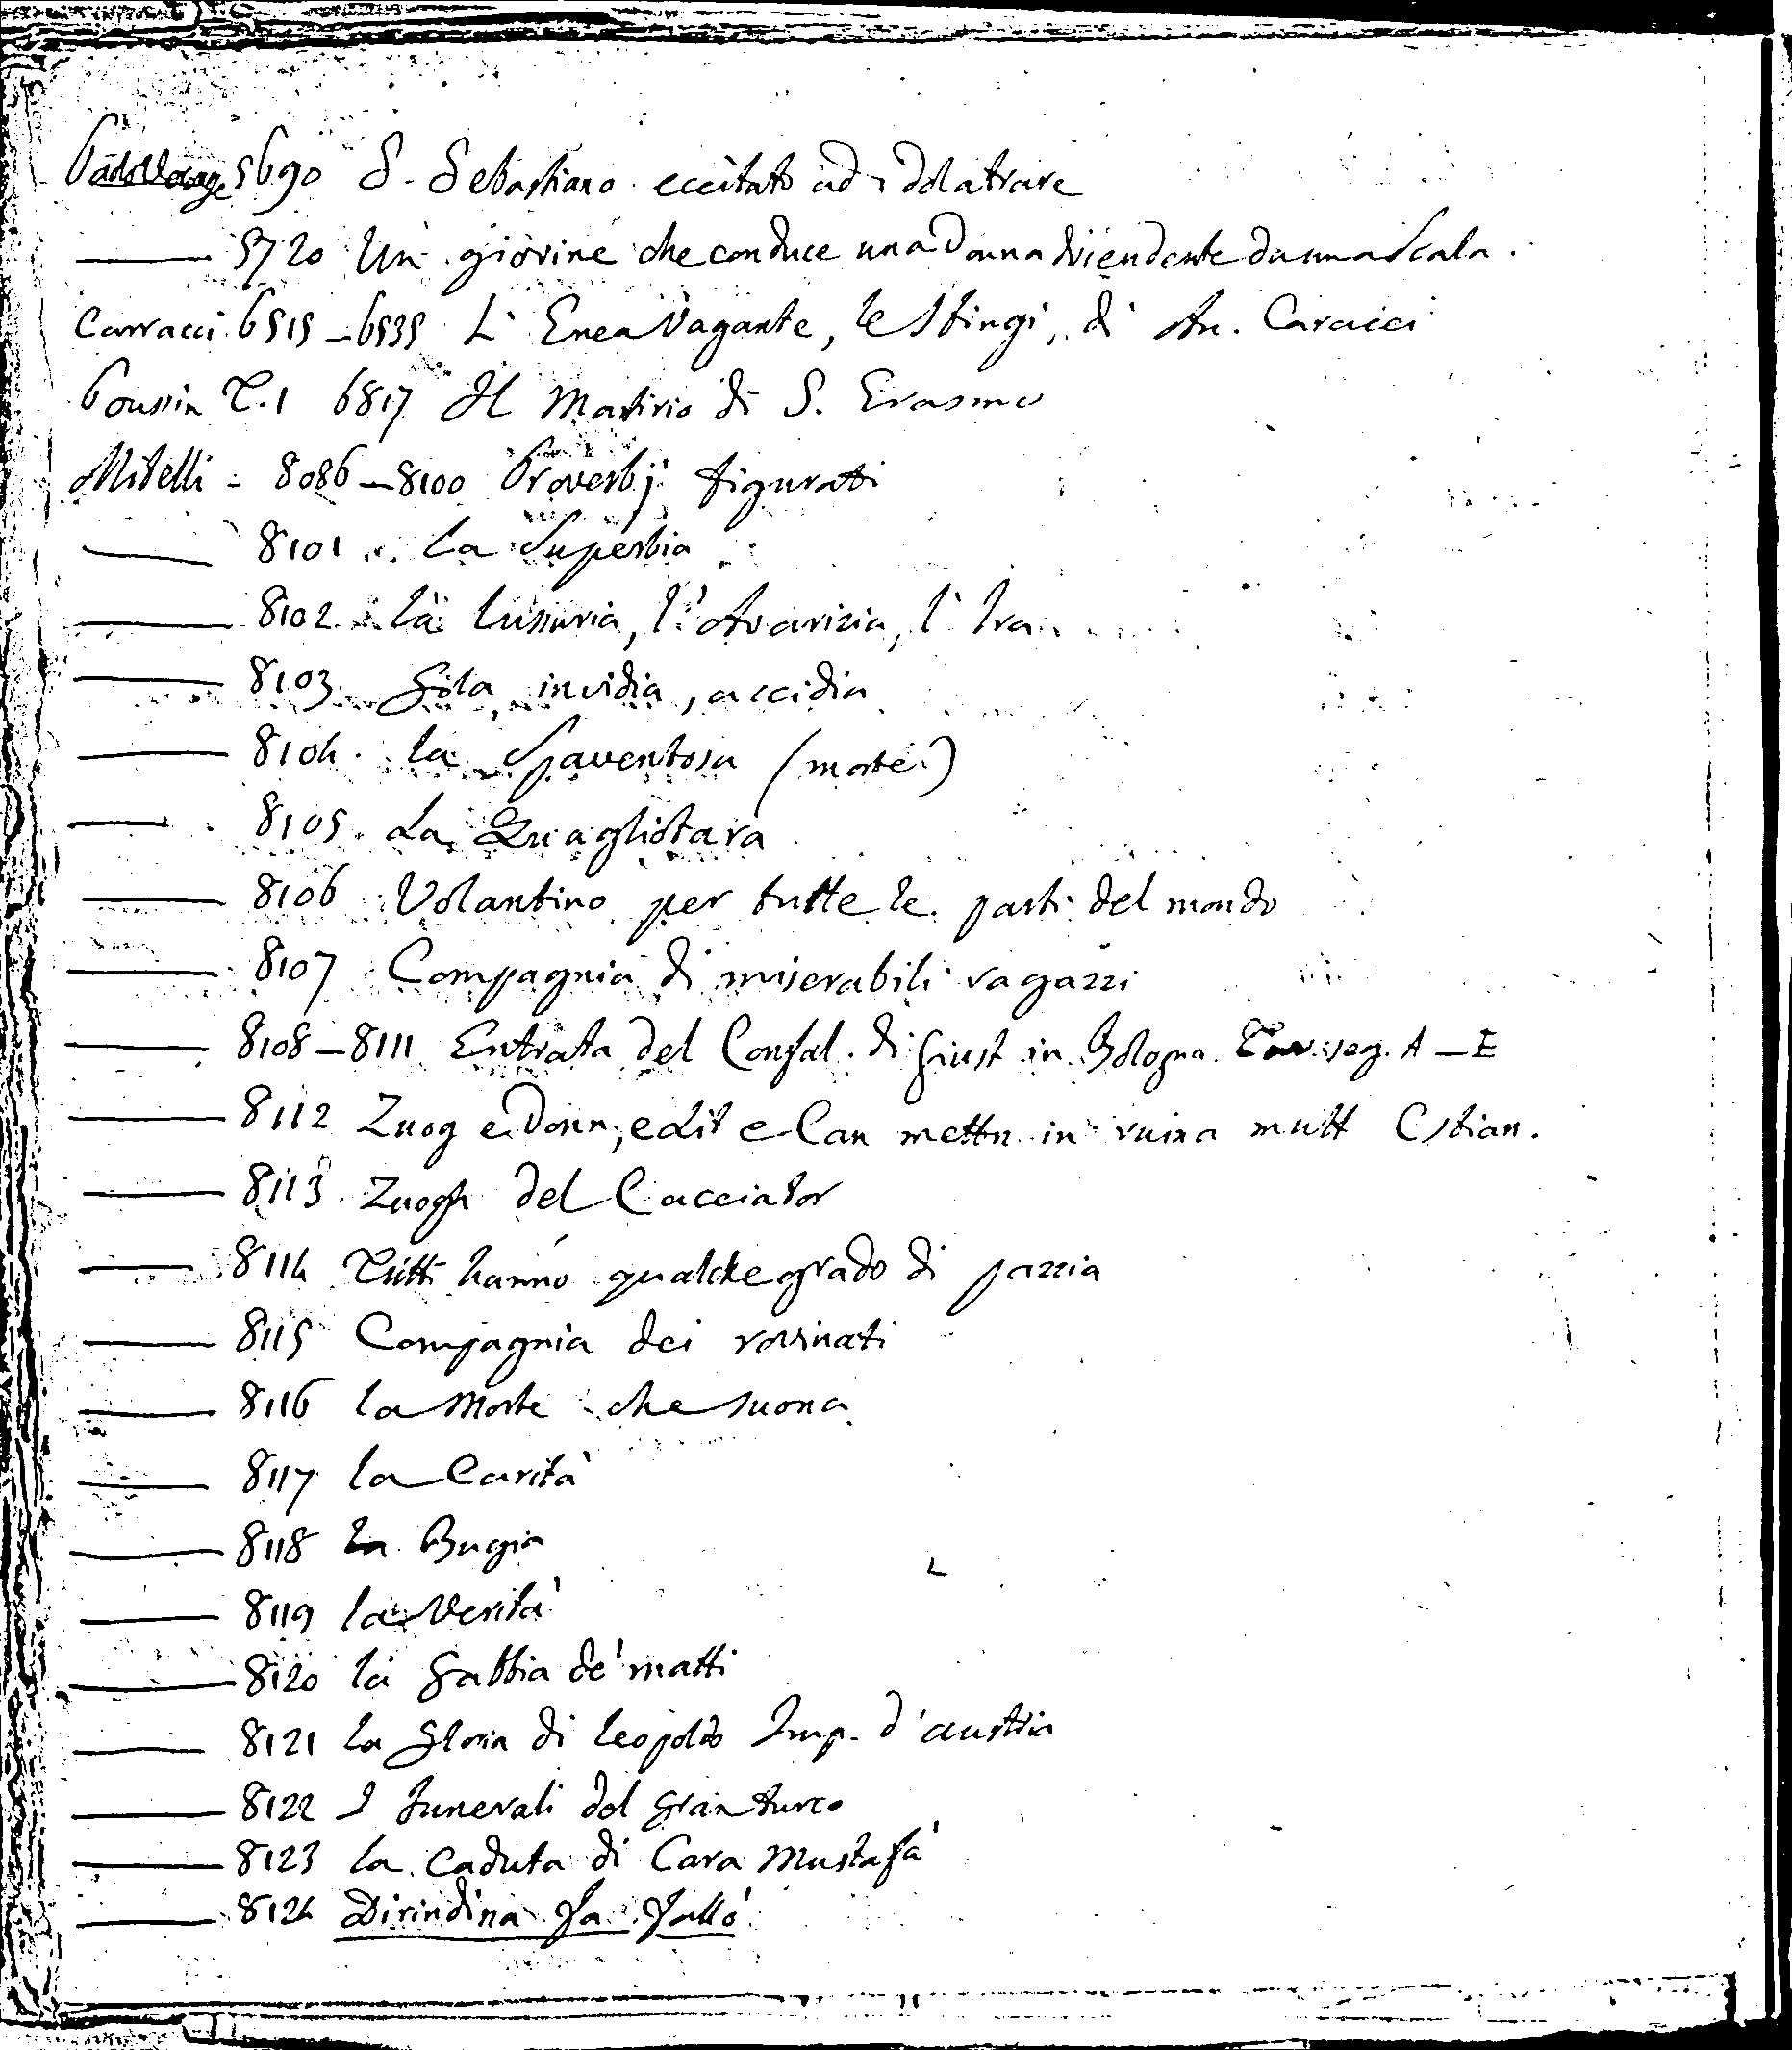 5690 S. Sebastiano eccitato ad idolatrare
—— 5720 Un giovine che conduce una Donna da una Scala.
Carracci 6515–6535 L' Enea Vagante, le Stingi, di An. Caracci
Poussin T.1 6817 Il Martirio di S. Erasmo
Mitelli - 8086–8100 Proverbj figurati
—— 8101 . La Superbia
—— 8102 . La lussuria, l'Avarizia, l'Ira
—— 8103 Gola, invidia, accidia
—— 8104 . la Spaventosa (morte)
—— 8105 . La Quagliotara
—— 8106 Volantino per tutte le parti del mondo
—— 8107 Compagnia di miserabili ragazzi
—— 8108–8111 Entrata del Confal. di Giust in Bologna Tav. seg. A–E
—— 8112 Zuog e Donn, e Lit e Can mettn in ruina mutt Cstian.
—— 8113 Zuogh del Cacciator
—— 8114 Tutti hanno qualche grado di pazzia
—— 8115 Compagnia dei rovinati
—— 8116 la Morte che suona
—— 8117 la Carità
—— 8118 la Bugia
—— 8119 la Verità
—— 8120 la Gabbia de' matti
—— 8121 la Gloria di Leopoldo Imp. d'austria
—— 8122 I funerali del Gran turco
—— 8123 la Caduta di Cara Mustafà
—— 8124 Dirindina fa fallò